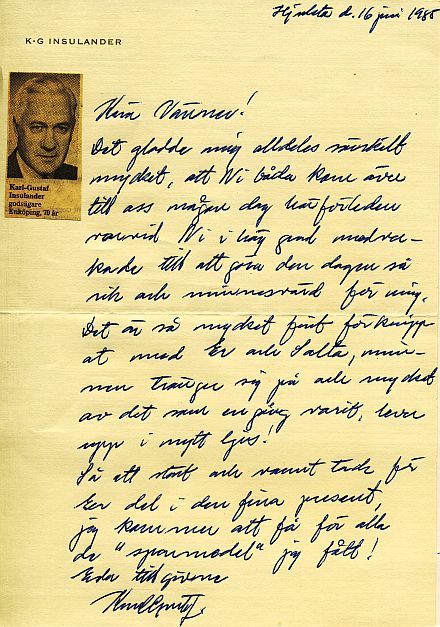 Hjulsta d. 16 juni 1985
K-G INSULANDER
Karl-Gustaf
Insulander
godsägare
Enköping, 70 år
Kära Vänner!
Det gladde mig alldeles särskilt
mycket, att Ni båda kom över
till oss någon dag häförleden
varvid Ni i hög grad medver-
kade till att göra den dagen så
rik och minnesvärd för mig.
Det är så mycket fint förknipp
at med Er och Salta, min-
nen tränger sig på och mycket
av det som en gång varit, lever
upp i nytt ljus!
Så ett stort och varmt tack för
Er del i den fina present,
jag kommer att få för alla
de "sparmedel" jag fått!
Eder tillgivne
Karl Gustaf.